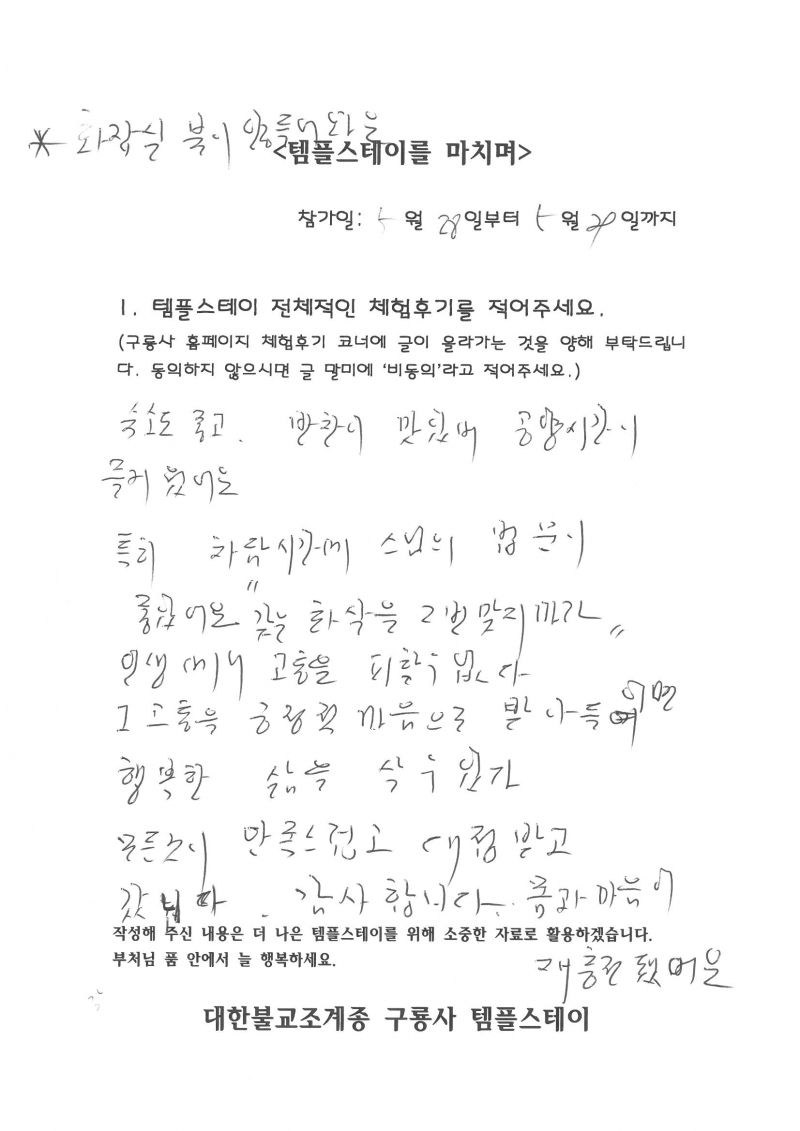 * 화장실 북이
<템플스테이를 마치며>
참가일: 5월 28일부터 5월 29일까지
1. 템플스테이 전체적인 체험후기를 적어주세요.
(구룡사 홈페이지 체험후기 코너에 글이 올라가는 것을 양해 부탁드립니
다. 동의하지 않으시면 글 말미에 '비동의'라고 적어주세요.)
숙소도 좋고. 반찬이 맛있어 공양시간이
즐거웠어요
특히 차담시간에 스님의 법문이
좋았어요 "같은 화살을 2번 맞지마라"
인생에서 고통을 피할수 없다
그 고통을 긍정적 마음으로 받아들이면
행복한 삶을 살 수 있다
모든것이 만족스럽고 대접 받고
갑니다. 감사합니다. 몸과 마음이
작성해 주신 내용은 더 나은 템플스테이를 위해 소중한 자료로 활용하겠습니다.
부처님 품 안에서 늘 행복하세요.
재충전 됐어요
대한불교조계종 구룡사 템플스테이